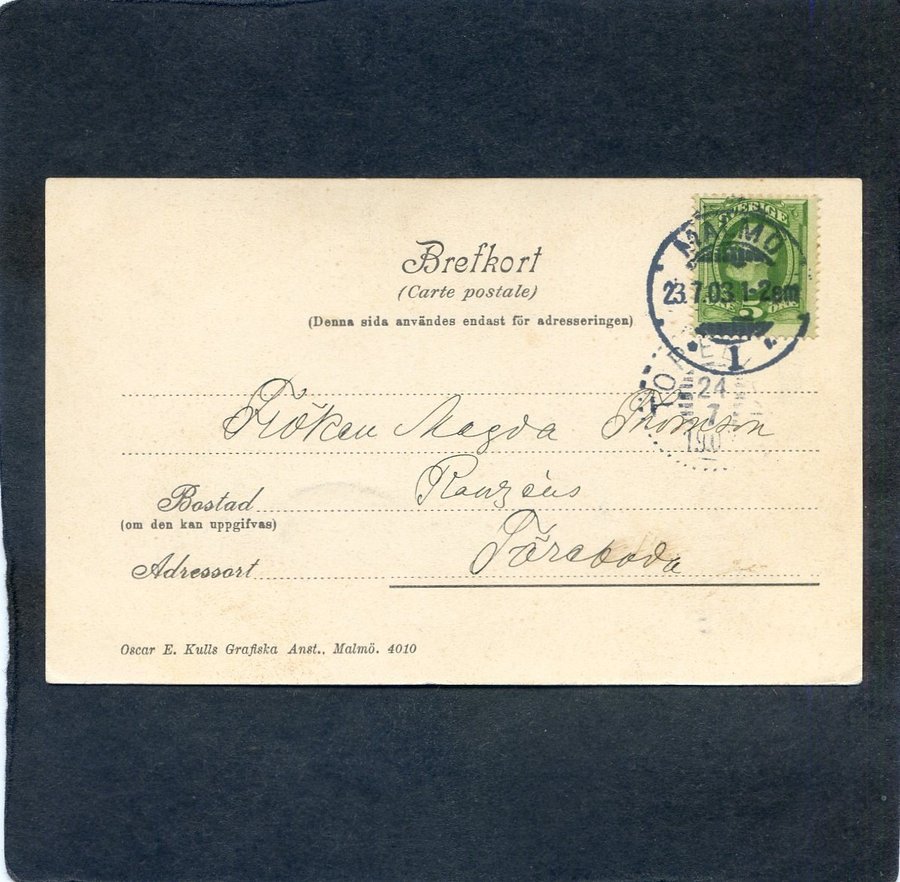 SVERIGE
MALMÖ
23.7.03 1-2em
1
5
Brefkort
(Carte postale)
(Denna sida användes endast för adresseringen)
24
7
190
Fröken Magda Thomson
Bostad
(om den kan uppgifvas)
Adressort
Töreboda
Oscar E. Kulls Grafiska Anst., Malmö. 4010